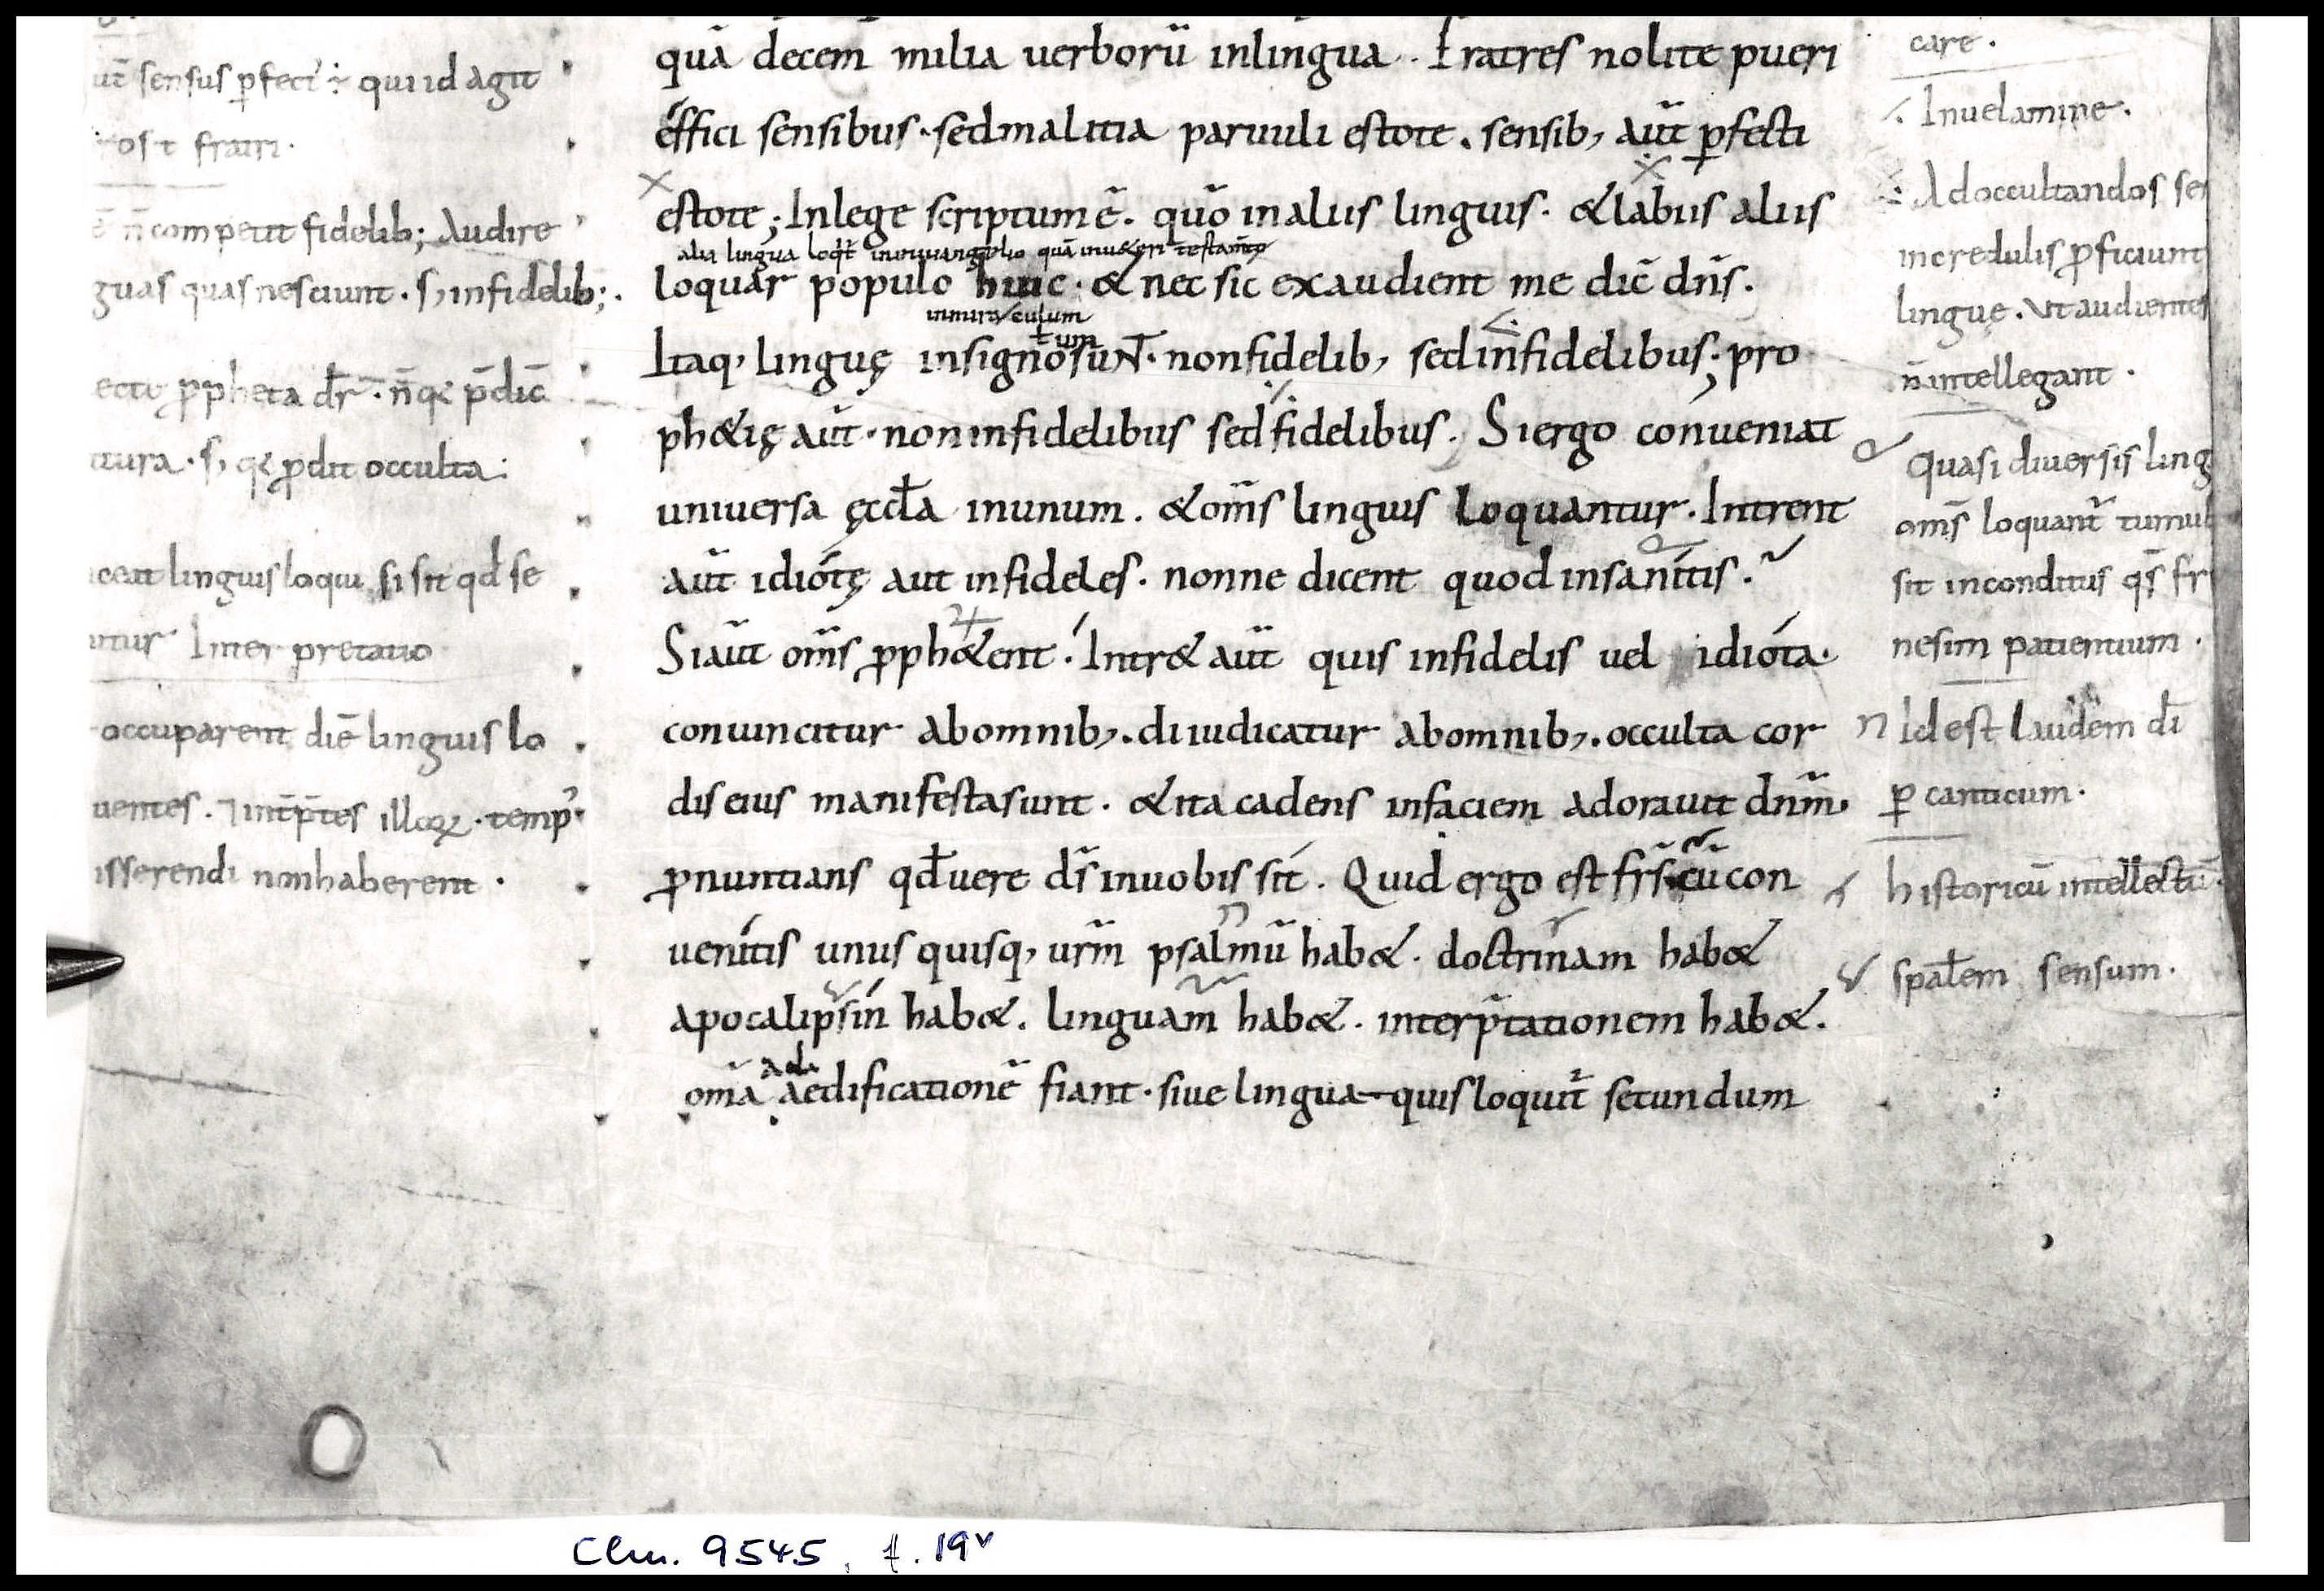 ut̄ sensus ꝑfect᾿ ÷ qui id agit
ost fratri.
ē n̄ competit fidelib; Audire
guas quas nesciunt · s; infidelib;
ecte ꝓpheta dr̄ · n̄ qı p̄dic̄
tura · s; qı ꝓdit occulta:
ceat linguis loqui si sit qd̄ se
atur Interpretatio
occuparent diē linguis lo
uentes. ⁊ int̄p̄tes illoꝝ · temp᾿
isserendi non haberent ·
quā decem milia uerborū inlingua · Fratres nolite pueri
effici sensibus · sed malitia paruuli estote. sensib; aūt ꝑfecti
estote; Inlege scriptum ē. quō inaliis linguis · & labiis aliis
alia lingua loq̄r̄ in euuangelio quā inueteri testam̄to
loquar populo huic · & nec sic exaudient me dic̄ dn̄s.
inmiraculum
t um
Itaq; linguę insigno suNT · nonfidelib; sed infidelibus; pro
ph&ię aūt · non infidelibus sed fidelibus. Si ergo conueniat
uniuersa ęccl̄a inunum. & om̄s linguis loquantur · Intrent
aūt idiotę aut infideles. nonne dicent quod insanitis.
Si aūt om̄s ꝓph&ent! Intr& aūt quis infidelis uel idiota·
conuincitur abomnib; · diiudicatur abomnib; · occulta cor
dis eius manifesta sunt · & ita cadens infaciem adorauit dn̄m·
ꝓnuntians qd̄ uere d̄s inuobis sit. Quid ergo est fr̄s cū con
uenitis unus quisq; ur̄m psalmū hab& · doctrinam hab&
apocalipsin hab&. linguam hab& · interp̄tationem hab&.
ad
om̄a aedificationē fiant · siue lingua quis loquit̄ secundum
care ·
Inuelamine.
Ad occultandos se
incredulis ꝓficiunt
linguę. Vt audientes
n̄ intellegant ·
Quasi diuersis ling
om̄s loquant̄ tumul
sit inconditus qs̄ fr
nesim patientium ·
Id est laudem dī
ꝑ canticum ·
historicū intellectū
sp̄alem sensum ·
Clm. 9545, f. 19v